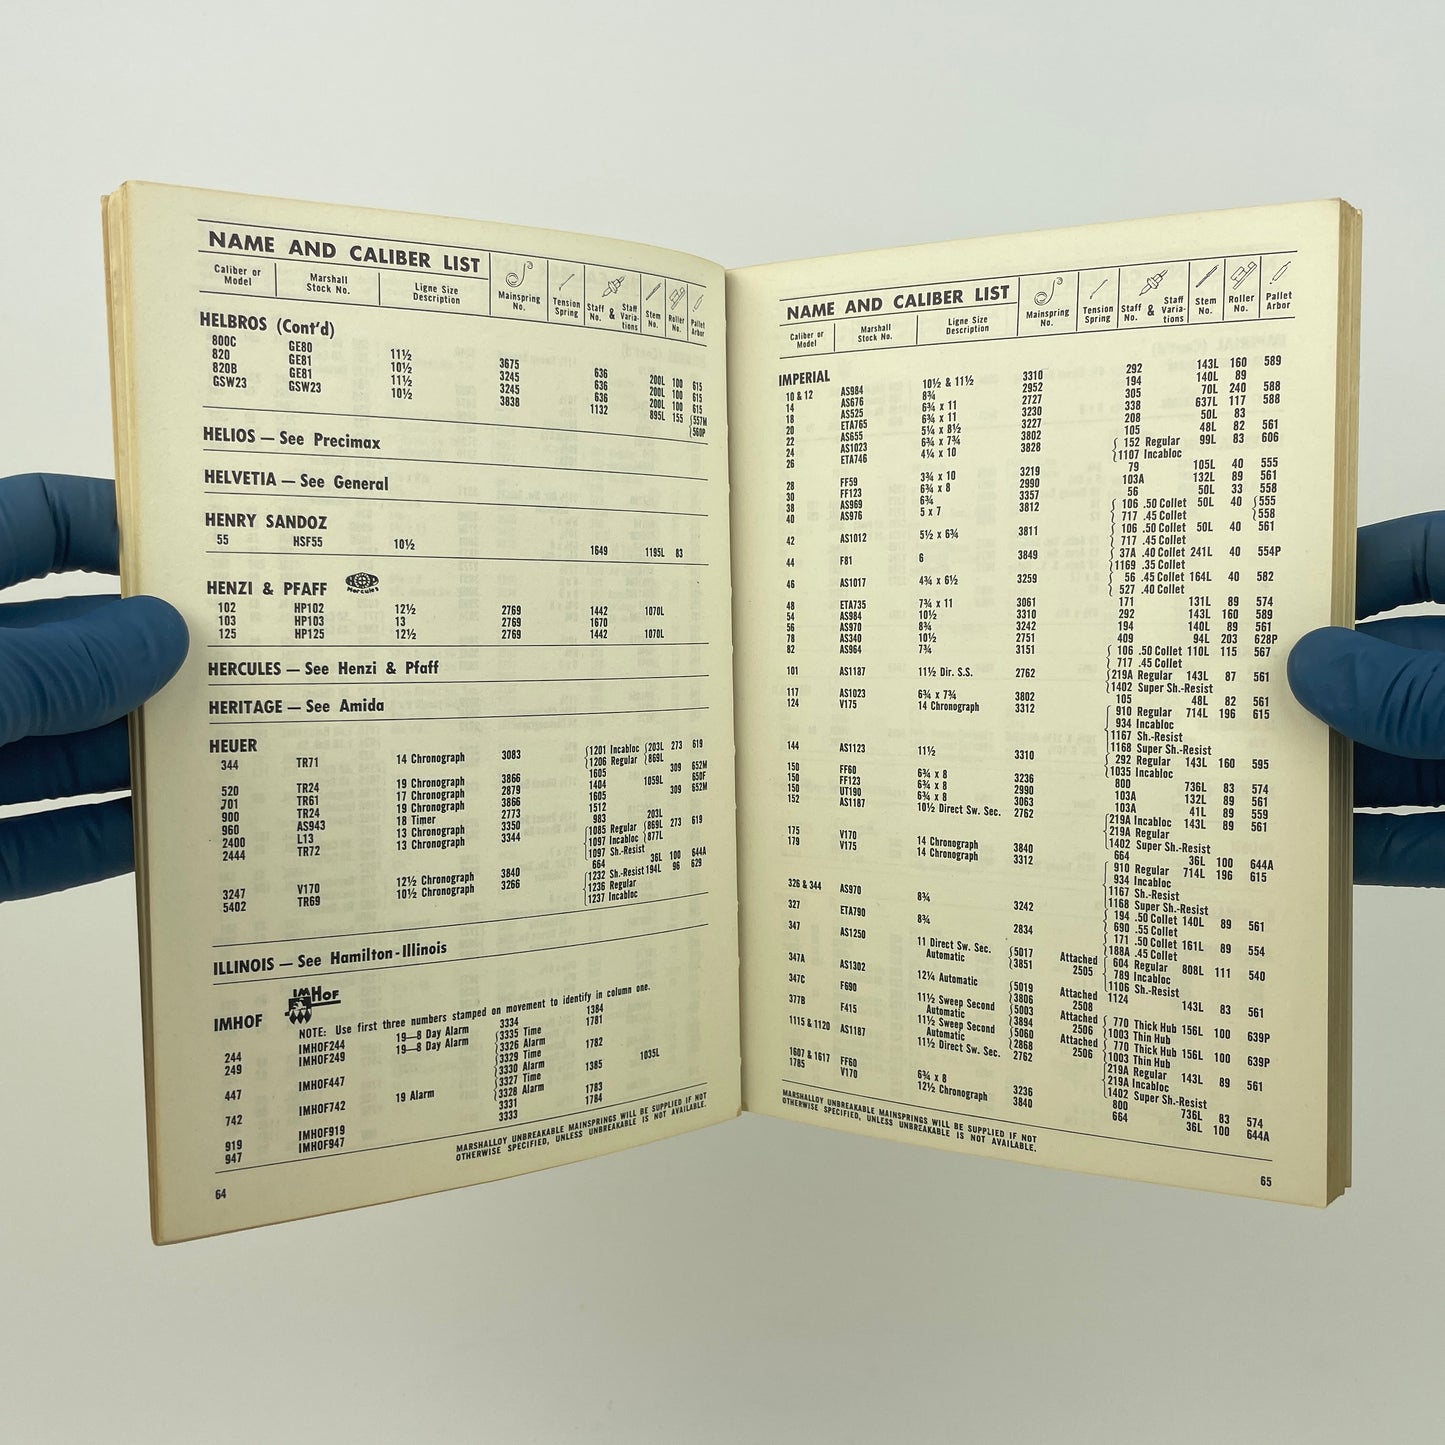 NAME AND CALIBER LIST
Caliber or Model Marshall Stock No. Ligne Size Description Mainspring No. Tension Spring Staff No. & Staff Variations Stem No. Roller No. Pallet Arbor
HELBROS (Cont'd)
800C GE80 11½ 3675 636 200L 100 615
820 GE81 10½ 3245 636 200L 100 615
820B GE81 11½ 3245 636 200L 100 615
GSW23 GSW23 10½ 3838 1132 895L 155 {557M
{560P
HELIOS — See Precimax
HELVETIA — See General
HENRY SANDOZ
55 HSF55 10½ 1649 1195L 83
HENZI & PFAFF H&P Hercules
102 HP102 12½ 2769 1442 1070L
103 HP103 13 2769 1670
125 HP125 12½ 2769 1442 1070L
HERCULES — See Henzi & Pfaff
HERITAGE — See Amida
HEUER
344 TR71 14 Chronograph 3083 {1201 Incabloc {203L 273 619
{1206 Regular {869L
520 TR24 19 Chronograph 3866 1605 309 652M
701 TR61 17 Chronograph 2879 1404 1059L 650F
900 TR24 19 Chronograph 3866 1605 309 652M
960 AS943 18 Timer 2773 1512
2400 L13 13 Chronograph 3350 983 203L
2444 TR72 13 Chronograph 3344 {1085 Regular {869L 273 619
{1097 Incabloc {877L
{1097 Sh.-Resist
3247 V170 12½ Chronograph 3840 664 36L 100 644A
5402 TR69 10½ Chronograph 3266 {1232 Sh.-Resist 194L 96 629
{1236 Regular
{1237 Incabloc
ILLINOIS — See Hamilton-Illinois
IMHOF IMHOF
NOTE: Use first three numbers stamped on movement to identify in column one.
244 IMHOF244 19—8 Day Alarm 3334 1384
249 IMHOF249 19—8 Day Alarm {3335 Time 1781
{3326 Alarm
447 IMHOF447 {3329 Time 1782
{3330 Alarm
742 IMHOF742 19 Alarm {3327 Time 1385 1035L
{3328 Alarm
919 IMHOF919 3331 1783
947 IMHOF947 3333 1784
MARSHALLOY UNBREAKABLE MAINSPRINGS WILL BE SUPPLIED IF NOT
OTHERWISE SPECIFIED, UNLESS UNBREAKABLE IS NOT AVAILABLE.
64
NAME AND CALIBER LIST
Caliber or Model Marshall Stock No. Ligne Size Description Mainspring No. Tension Spring Staff No. & Staff Variations Stem No. Roller No. Pallet Arbor
IMPERIAL
10 & 12 AS984 10½ & 11½ 3310 292 143L 160 589
14 AS676 8¾ 2952 194 140L 89
18 AS525 6¾ x 11 2727 305 70L 240 588
20 ETA765 6¾ x 11 3230 338 637L 117 588
22 AS655 5¼ x 8½ 3227 208 50L 83
24 AS1023 6¾ x 7¾ 3802 105 48L 82 561
26 ETA746 4¼ x 10 3828 { 152 Regular 99L 83 606
{1107 Incabloc
28 FF59 3¾ x 10 3219 79 105L 40 555
30 FF123 6¾ x 8 2990 103A 132L 89 561
38 AS969 6¾ 3357 56 50L 33 558
40 AS976 5 x 7 3812 { 106 .50 Collet 50L 40 {555
{ 717 .45 Collet {558
42 AS1012 5½ x 6¾ 3811 { 106 .50 Collet 50L 40 561
{ 717 .45 Collet
44 F81 6 3849 { 37A .40 Collet 241L 40 554P
{1169 .35 Collet
46 AS1017 4¾ x 6½ 3259 { 56 .45 Collet 164L 40 582
{ 527 .40 Collet
48 ETA735 7¾ x 11 3061 171 131L 89 574
54 AS984 10½ 3310 292 143L 160 589
56 AS970 8¾ 3242 194 140L 89 561
78 AS340 10½ 2751 409 94L 203 628P
82 AS964 7¾ 3151 { 106 .50 Collet 110L 115 567
{ 717 .45 Collet
101 AS1187 11½ Dir. S.S. 2762 {219A Regular 143L 87 561
{1402 Super Sh.-Resist
117 AS1023 6¾ x 7¾ 3802 105 48L 82 561
124 V175 14 Chronograph 3312 { 910 Regular 714L 196 615
{ 934 Incabloc
{1167 Sh.-Resist
{1168 Super Sh.-Resist
144 AS1123 11½ 3310 { 292 Regular 143L 160 595
{1035 Incabloc
150 FF60 6¾ x 8 3236 800 736L 83 574
150 FF123 6¾ x 8 2990 103A 132L 89 561
150 UT190 6¾ x 8 3063 103A 41L 89 559
152 AS1187 10½ Direct Sw. Sec. 2762 {219A Incabloc 143L 89 561
{219A Regular
{1402 Super Sh.-Resist
175 V170 14 Chronograph 3840 664 36L 100 644A
179 V175 14 Chronograph 3312 { 910 Regular 714L 196 615
{ 934 Incabloc
{1167 Sh.-Resist
{1168 Super Sh.-Resist
326 & 344 AS970 8¾ 3242 { 194 .50 Collet 140L 89 561
{ 690 .55 Collet
327 ETA790 8¾ 2834 { 171 .50 Collet 161L 89 554
{188A .45 Collet
347 AS1250 11 Direct Sw. Sec. {5017 Attached { 604 Regular 808L 111 540
Automatic {3851 2505 { 789 Incabloc
{1106 Sh.-Resist
347A AS1302 12¼ Automatic {5019 Attached 1124 143L 83 561
{3806 2508
347C F690 11½ Sweep Second {5003 Attached { 770 Thick Hub 156L 100 639P
Automatic {3894 2506 {1003 Thin Hub
377B F415 11½ Sweep Second {5060 Attached { 770 Thick Hub 156L 100 639P
Automatic {2868 2506 {1003 Thin Hub
1115 & 1120 AS1187 11½ Direct Sw. Sec. 2762 {219A Regular 143L 89 561
{219A Incabloc
{1402 Super Sh.-Resist
1607 & 1617 FF60 6¾ x 8 3236 800 736L 83 574
1785 V170 12½ Chronograph 3840 664 36L 100 644A
MARSHALLOY UNBREAKABLE MAINSPRINGS WILL BE SUPPLIED IF NOT
OTHERWISE SPECIFIED, UNLESS UNBREAKABLE IS NOT AVAILABLE.
65